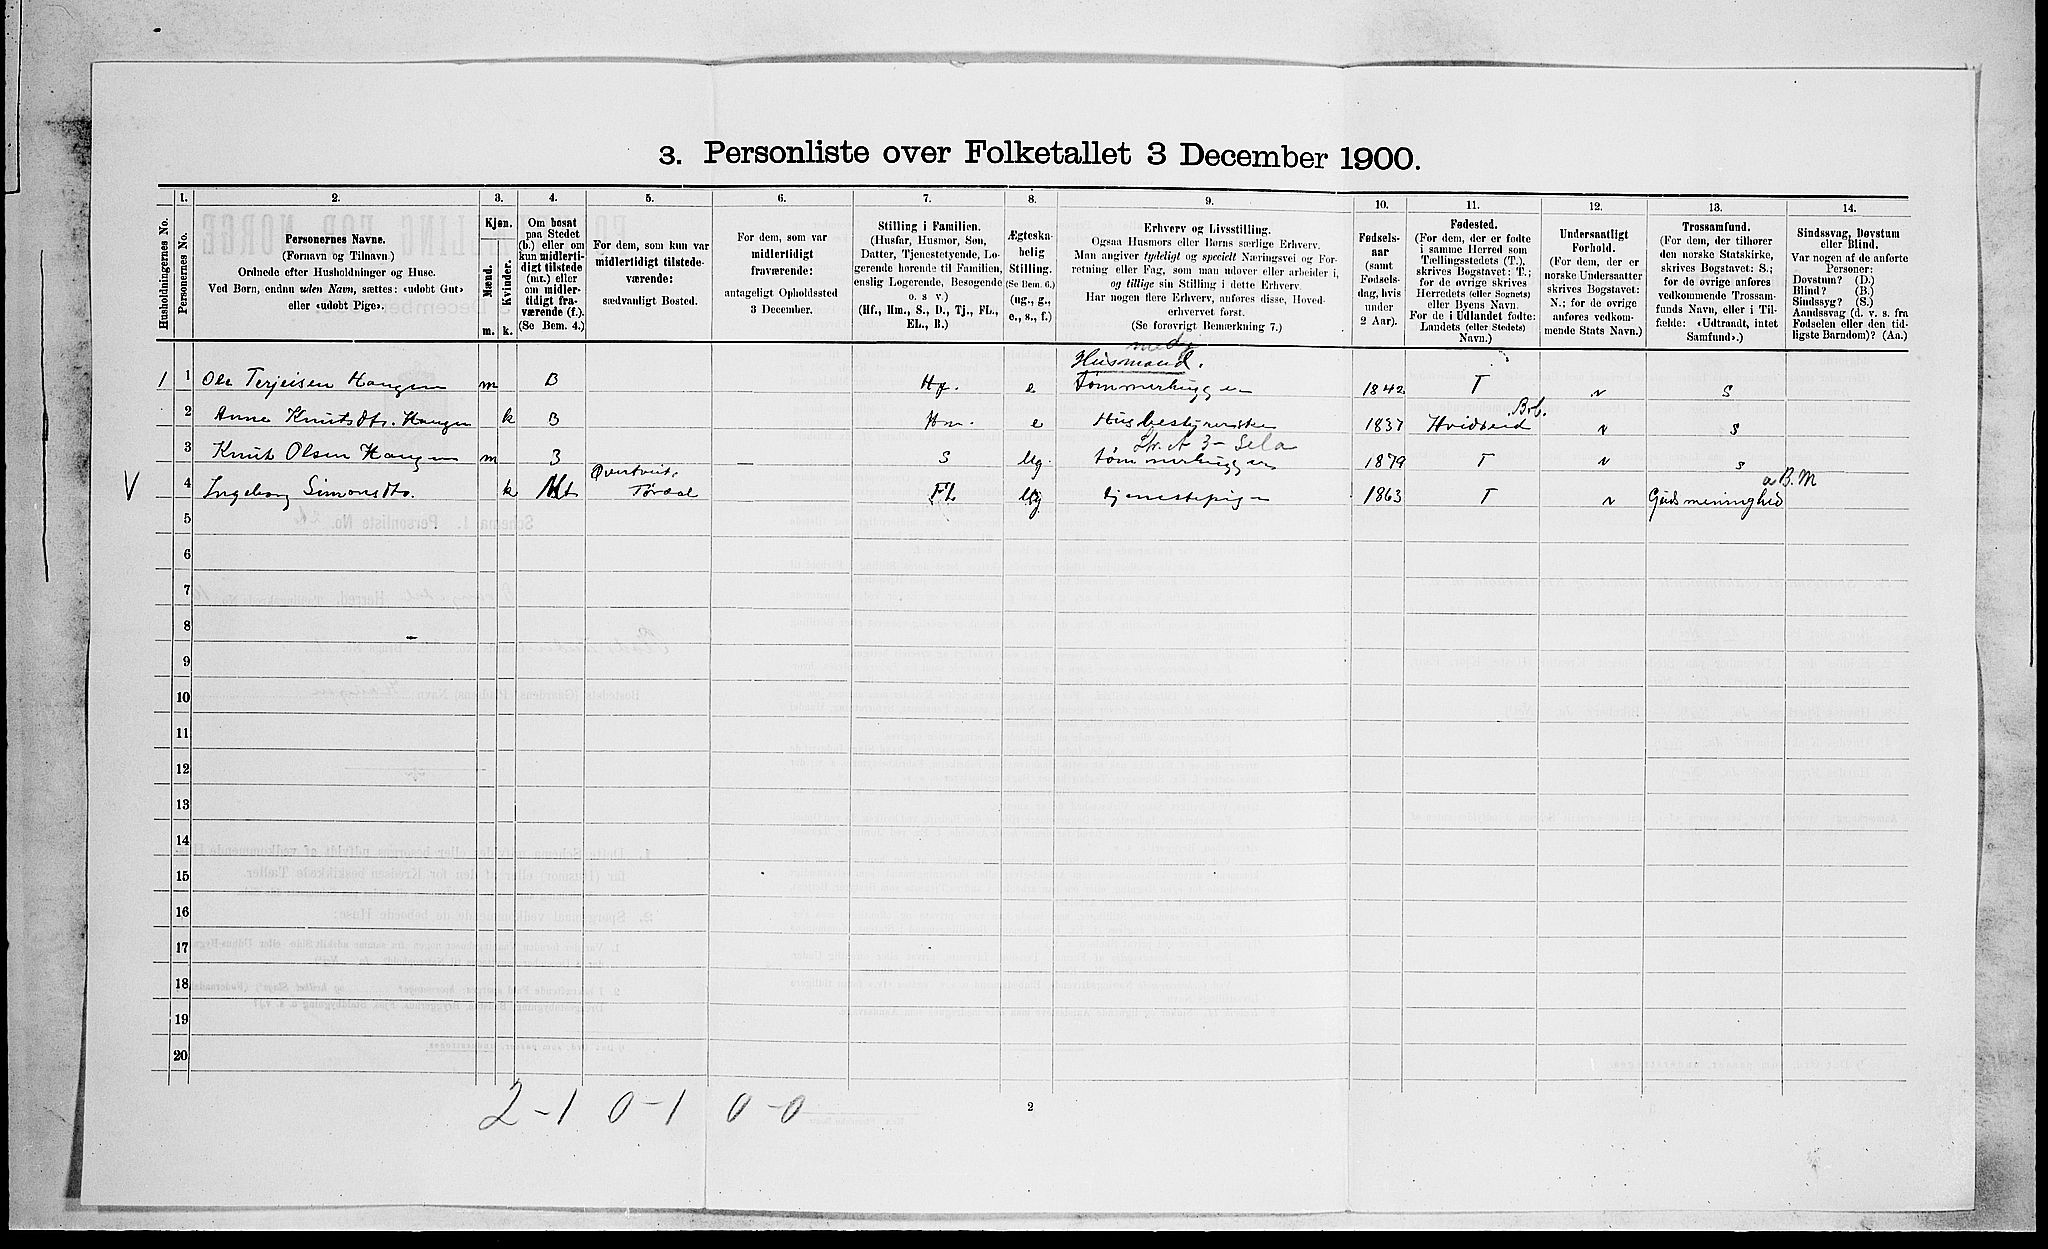 3. Personliste over Folketallet 3 December 1900.
Husholdningernes No.
1.
Personernes No.
2.
Personernes Navne.
(Fornavn og Tilnavn.)
Ordnede efter Husholdninger og Huse.
Ved Børn, endnu uden Navn, sættes: «udøbt Gut»
eller «udøbt Pige».
3.
Kjøn.
Mænd.
Kvinder.
m. k.
4.
Om bosat
paa Stedet
(b.) eller om
kun midlerti-
digt tilstede
(mt.) eller
om midler-
tidigt fra-
værende (f.).
(Se Bem. 4.)
5.
For dem, som kun var
midlertidigt tilstede-
værende:
sædvanligt Bosted.
6.
For dem, som var
midlertidigt
fraværende:
antageligt Opholdssted
3 December.
7.
Stilling i Familien.
(Husfar, Husmor, Søn,
Datter, Tjenestetyende, Lo-
gerende hørende til Familien,
enslig Logerende, Besøgende
o. s v.)
(Hf., Hm., S., D., Tj., FL.,
EL., B.)
8.
Ægteska-
belig
Stilling.
(Se Bem. 6.)
(ug., g.,
e., s., f.)
9.
Erhverv og Livsstilling.
Ogsaa Husmors eller Børns særlige Erhverv.
Man angiver tydeligt og specielt Næringsvei og For-
retning eller Fag, som man udøver eller arbeider i,
og tillige sin Stilling i dette Erhverv.
Har nogen flere Erhverv, anføres disse, Hoved-
erhvervet først.
(Se forøvrigt Bemærkning 7.)
10.
Fødsels-
aar
(samt
Fødsels-
dag, hvis
under
2 Aar).
11.
Fødested.
(For dem, der er fødte
i samme Herred som
Tællingsstedets (T.),
skrives Bogstavet: T.;
for de øvrige skrives
Herredets (eller Sognets)
eller Byens Navn.
For de i Udlandet fødte:
Landets (eller Stedets)
Navn.)
12.
Undersaatligt
Forhold.
(For dem, der er
norske Undersaatter
skrives Bogstavet:
N.; for de øvrige
anføres vedkom-
mende Stats Navn.)
13.
Trossamfund.
(For dem, der tilhører
den norske Statskirke,
skrives Bogstavet: S.;
for de øvrige anføres
vedkommende Trossam-
funds Navn, eller i Til-
fælde: «Udtraadt, intet
Samfund».)
14.
Sindssvag, Døvstum
eller Blind.
Var nogen af de anførte
Personer:
Døvstum? (D.)
Blind? (B.)
Sindssyg? (S.)
Aandssvag (d. v. s. fra
Fødselen eller den tid-
ligste Barndom)? (Aa.)
Husmand.
1 1 Ole Terjeisen Haugen m B Hf. e tømmerhugger 1842 T N S
2 Anne Knutsdtr. Haugen k B Hm. e Husbestyrerske 1837 Hvidseid Brb. N S
3 Knut Olsen Haugen m B S Ug. tømmerhugger 1879 T N S
V 4 Ingeborg Simonsdtr. k Mt Tørdal FL Ug tjenestepige 1863 T N B.M
5
6
7
8
9
10
11
12
13
14
15
16
17
18
19
20
2-1 0-1 0-0
2